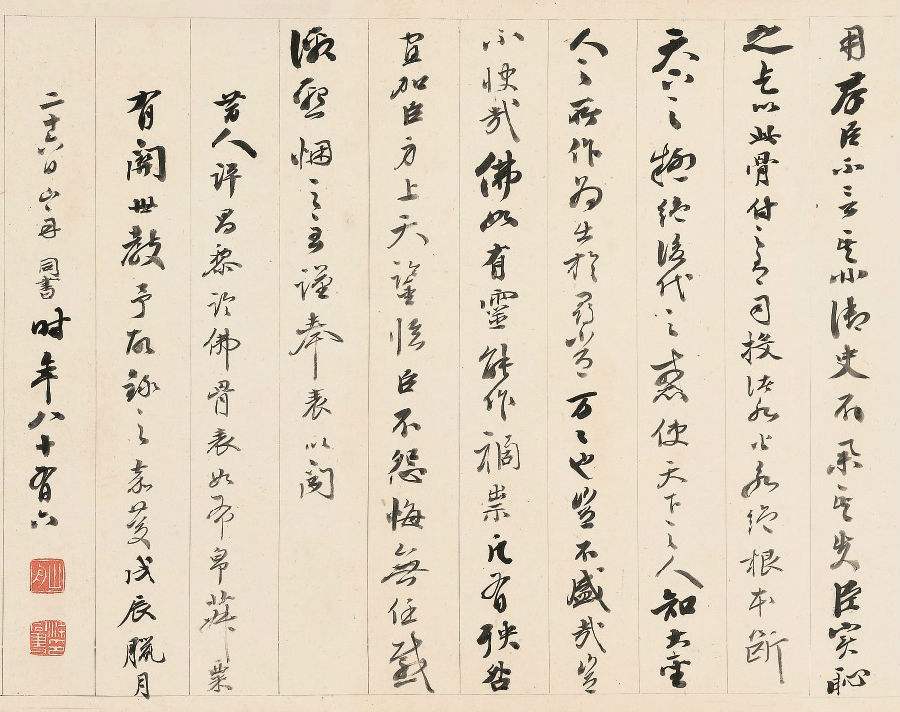 用群臣不言其非御史不舉其失臣實恥
之乞以此骨付之有司投諸水火永絕根本斷
天下之疑絕後代之惑使天下之人知大聖
人之所作為出於尋常萬萬也豈不盛哉豈
不快哉佛如有靈能作禍祟凡有殃咎
宜加臣身上天鑒臨臣不怨悔無任感
激懇悃之至謹奉表以聞
昔人評昌黎論佛骨表如布帛菽粟
有關世教予故錄之嘉慶戊辰臘月
二十六日山舟同書時年八十有六